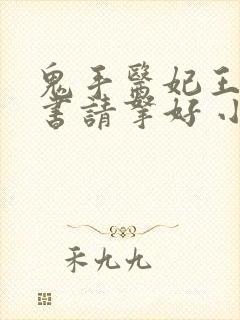 鬼手醫妃王
書請拏好小
禾九九